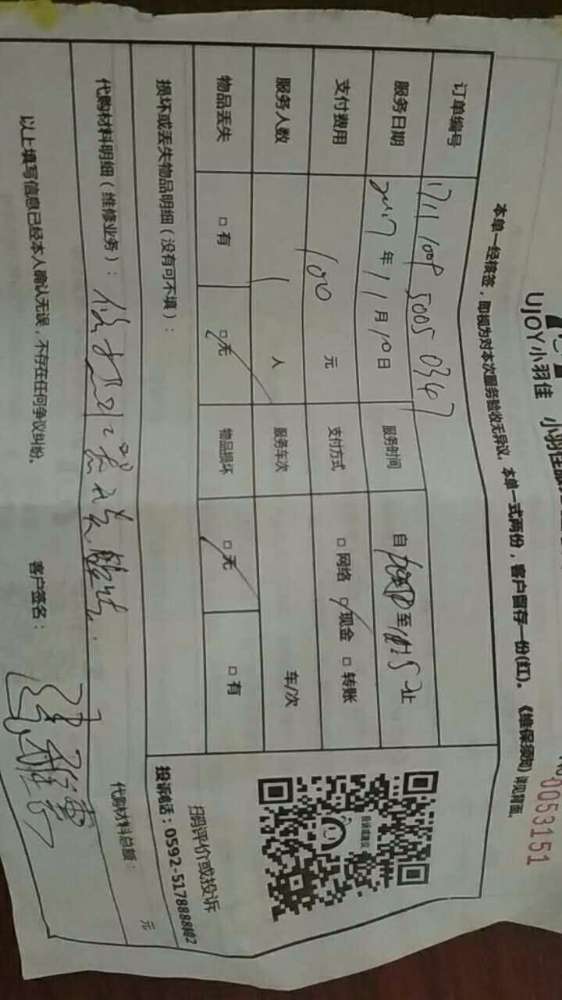 UJOY小羽佳 小羽佳
0053151
本单一经核签，即视为对本次服务验收无异议，本单一式两份，客户留存一份(红)。《维保须知》详见背面。
订单编号 1711 1009 5005 0347
服务日期 2017年11月10日 服务时间 自 至 止
支付费用 100 元 支付方式 □网络 □现金 □转账
服务人数 1 人 服务车次 车/次
物品丢失 □有 □无 物品损坏 □无 □有
损坏或丢失物品明细（没有可不填）：
扫码评价或投诉
投诉电话：0592-5178888转802
代购材料明细（维修业务）：
代购材料总额： 元
以上填写信息已经本人确认无误，不存在任何争议纠纷。
客户签名：